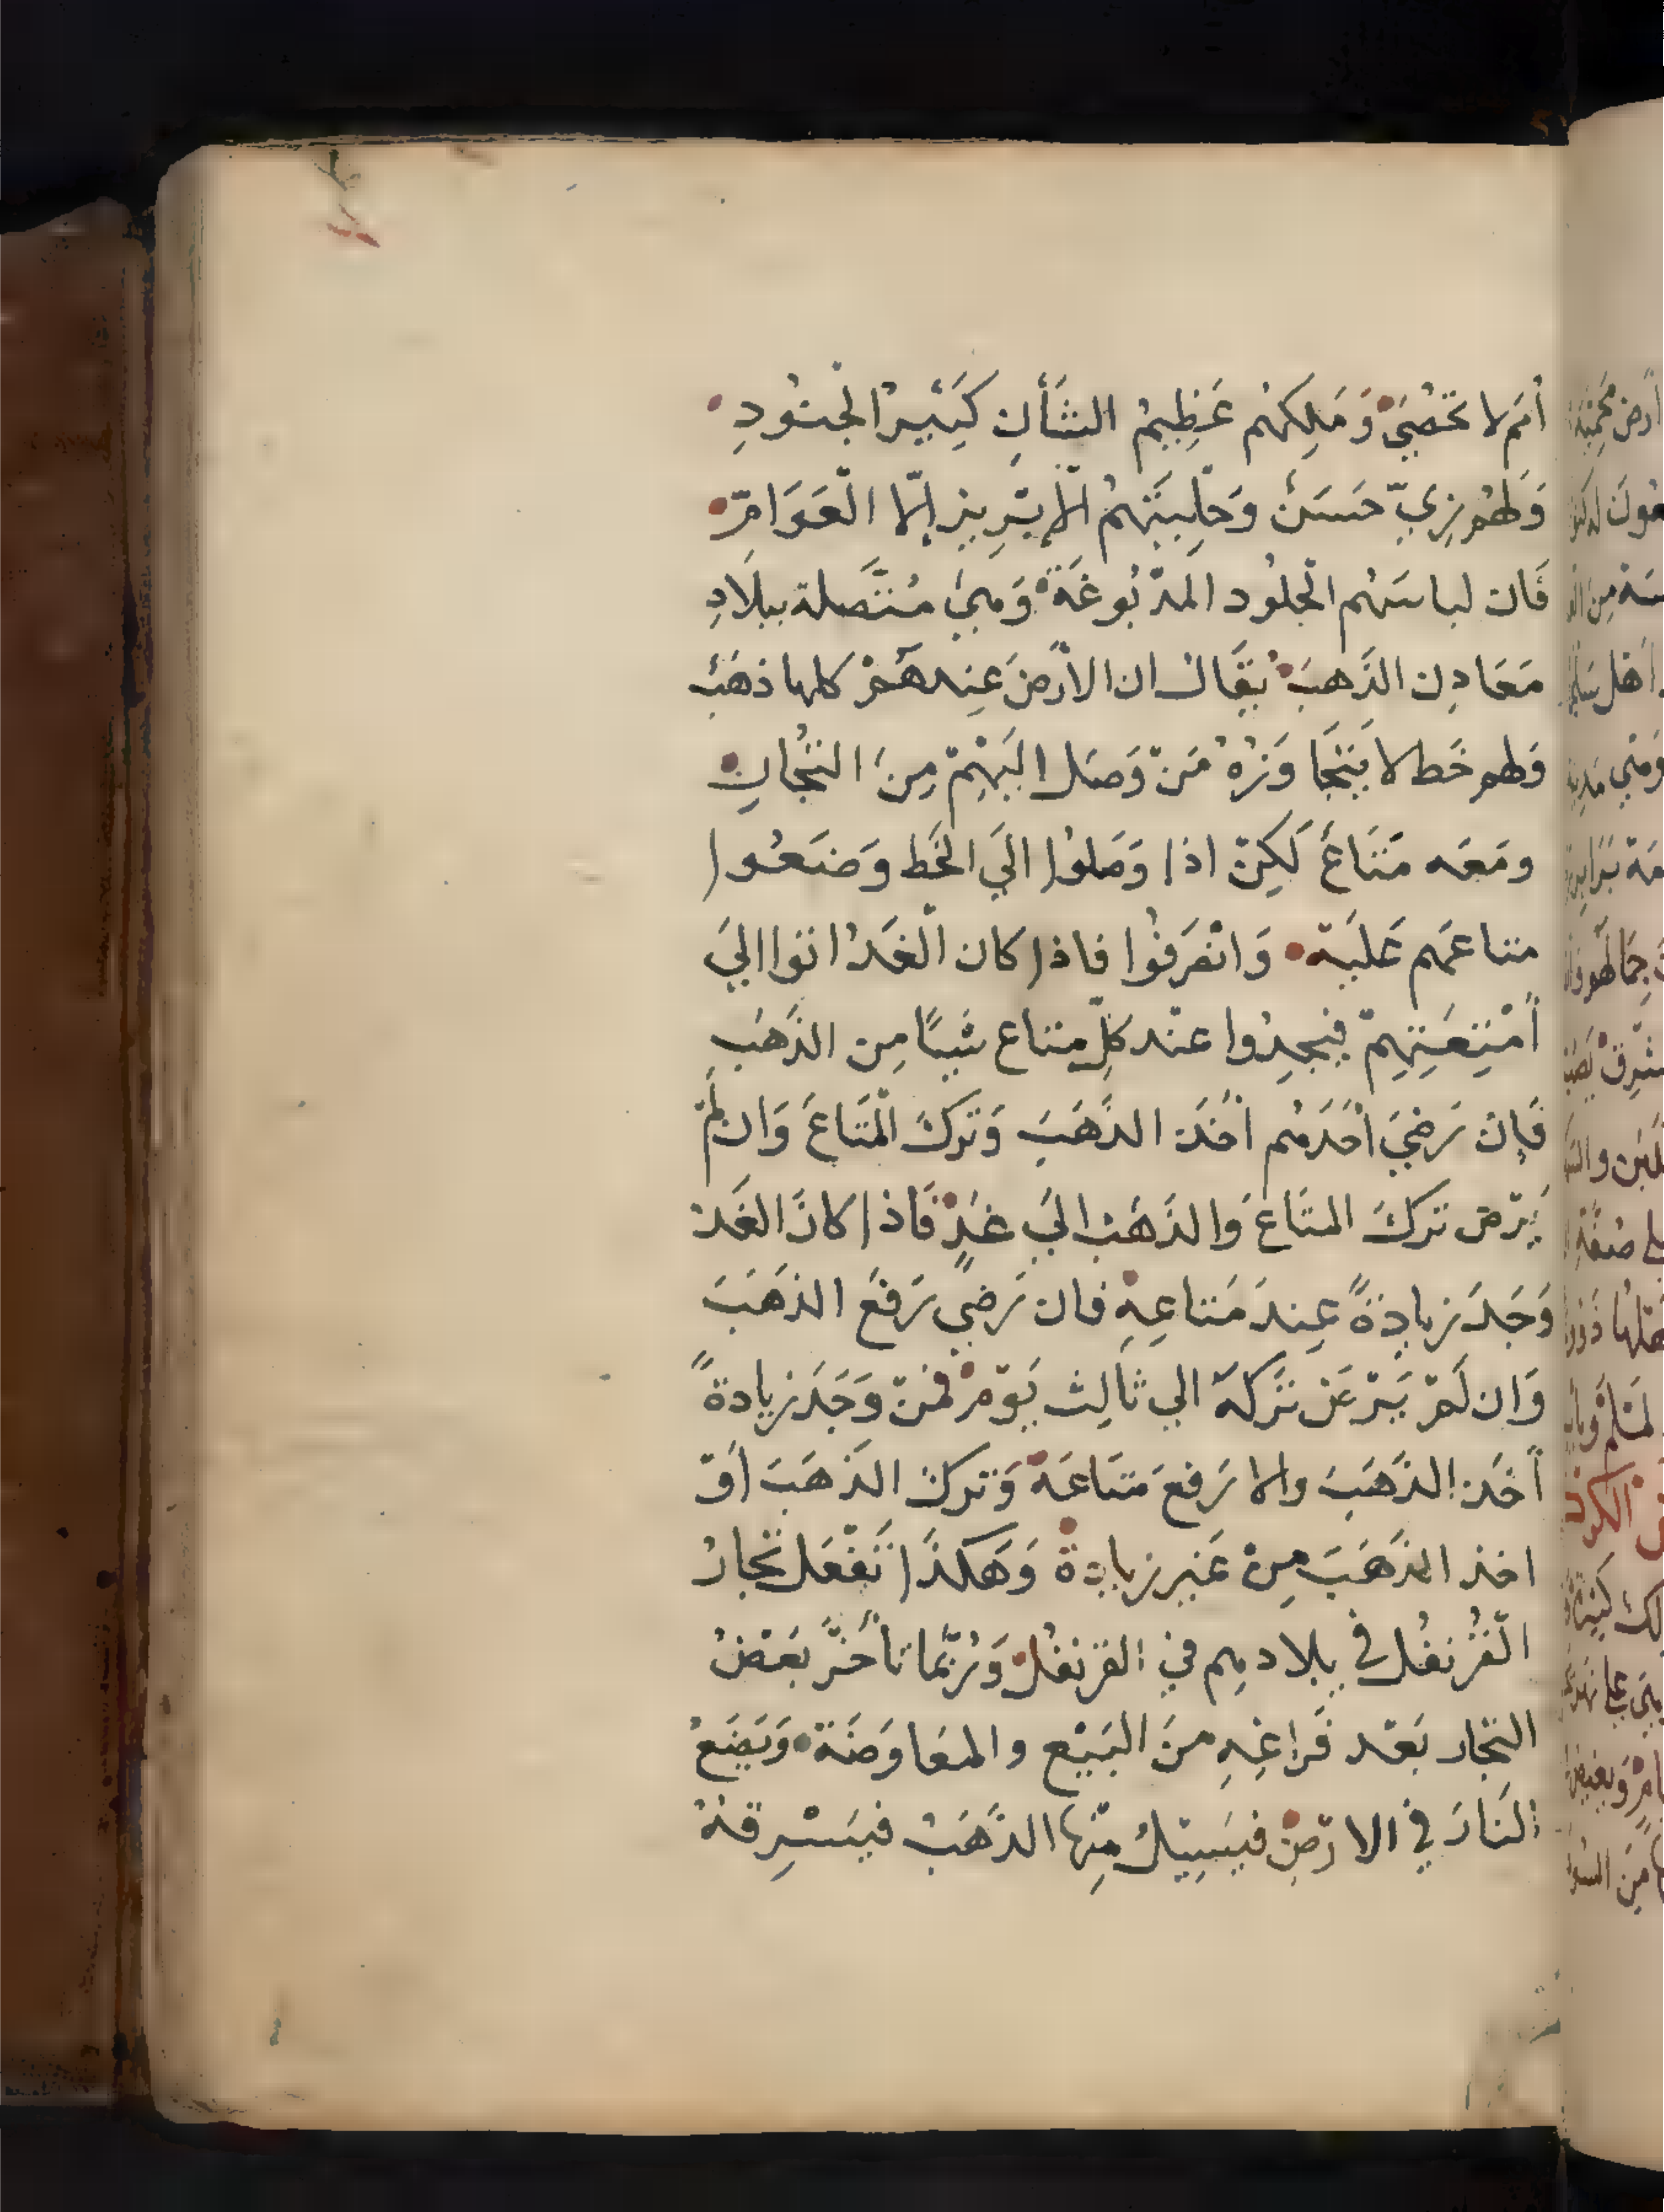 أمَم لا تحْصَىَ وَمَلِكهُم عَظِيمُ الشَأنِ كَثيرُ الجنُودِ
وَلهُم زِيّ حَسَنٌ وَحَلِيبَتهُمْ الإبْرِيز إلّا العَوَامّ
فَان لباسَهُم الجلُود المدْبُوغَة وَهىَ مُتَّصلة ببلَادِ
مَعَادِن الذَهبَ يُقَال ان الارْضَ عِندهَمْ كلها ذهَبٌ
وَلهم خَط لا يَتَجَاوَزُهُ مَنْ وَصَل اليَهْمْ مِنَ التجُارِ
ومَعَه مَتَاعٌ لَكِنْ اذا وَصَلوُا الَي الخَط وَضَعُوا
متاعَهم عَليَه وَانْصَرَفُوا فاذا كان الْغَدُ اتوا اليَ
أمْتِعَتِهِمْ فيجِدُوا عنْد كلِّ متاع شَيًا مِن الذَهَب
فَإن رَضيَ أحَدَهُم أخَذ الذَهَبَ وَترَكَ الْمَتَاعَ وَان لَمْ
يَرْض تركَ المتَاعَ وَالذَهَبْ اليَ غدٍ فَاذا كانَ الغَد
وَجَدَ زيادةً عِندَ مَتاعِهِ فان رَضي رَفعَ الذهَبَ
وَان لَمْ يَرْضَ تَركهُ الي ثالِث يَوْمْ فمَنْ وَجَدَ زيادةً
أخَذ الذهَبَ والا رَفعَ مَتَاعَهُ وَترك الذَهَبَ أوْ
اخذ الذَهَبَ مِنْ غَير زيادة وَهَكذَا تَفْعَل تجارُ
الْقُرْنفُل في بلادهِم في القرنفُل وَرُبّمَا تأخَّرَ بَعَضُ
التجار بَعْد فَرَاغِهِ منَ البَيْع والمعَاوَضَة وَيَضَعُ
النَارَ في الارْضِ فيَسِيْلُ مِنْها الذَهَبُ فيَسْرِقهُ